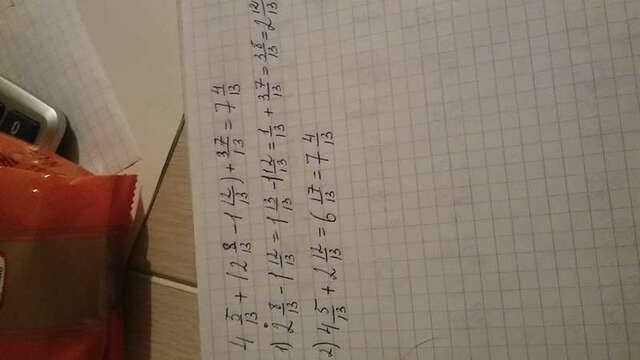 4 5/13 + (2 8/13 - 1 12/13) + 37/13 = 7 4/13
1) 2 8/13 - 1 12/13 = 1 13/13 - 1 12/13 = 1/13 + 37/13 = 38/13 = 2 12/13
2) 4 5/13 + 2 12/13 = 6 17/13 = 7 4/13